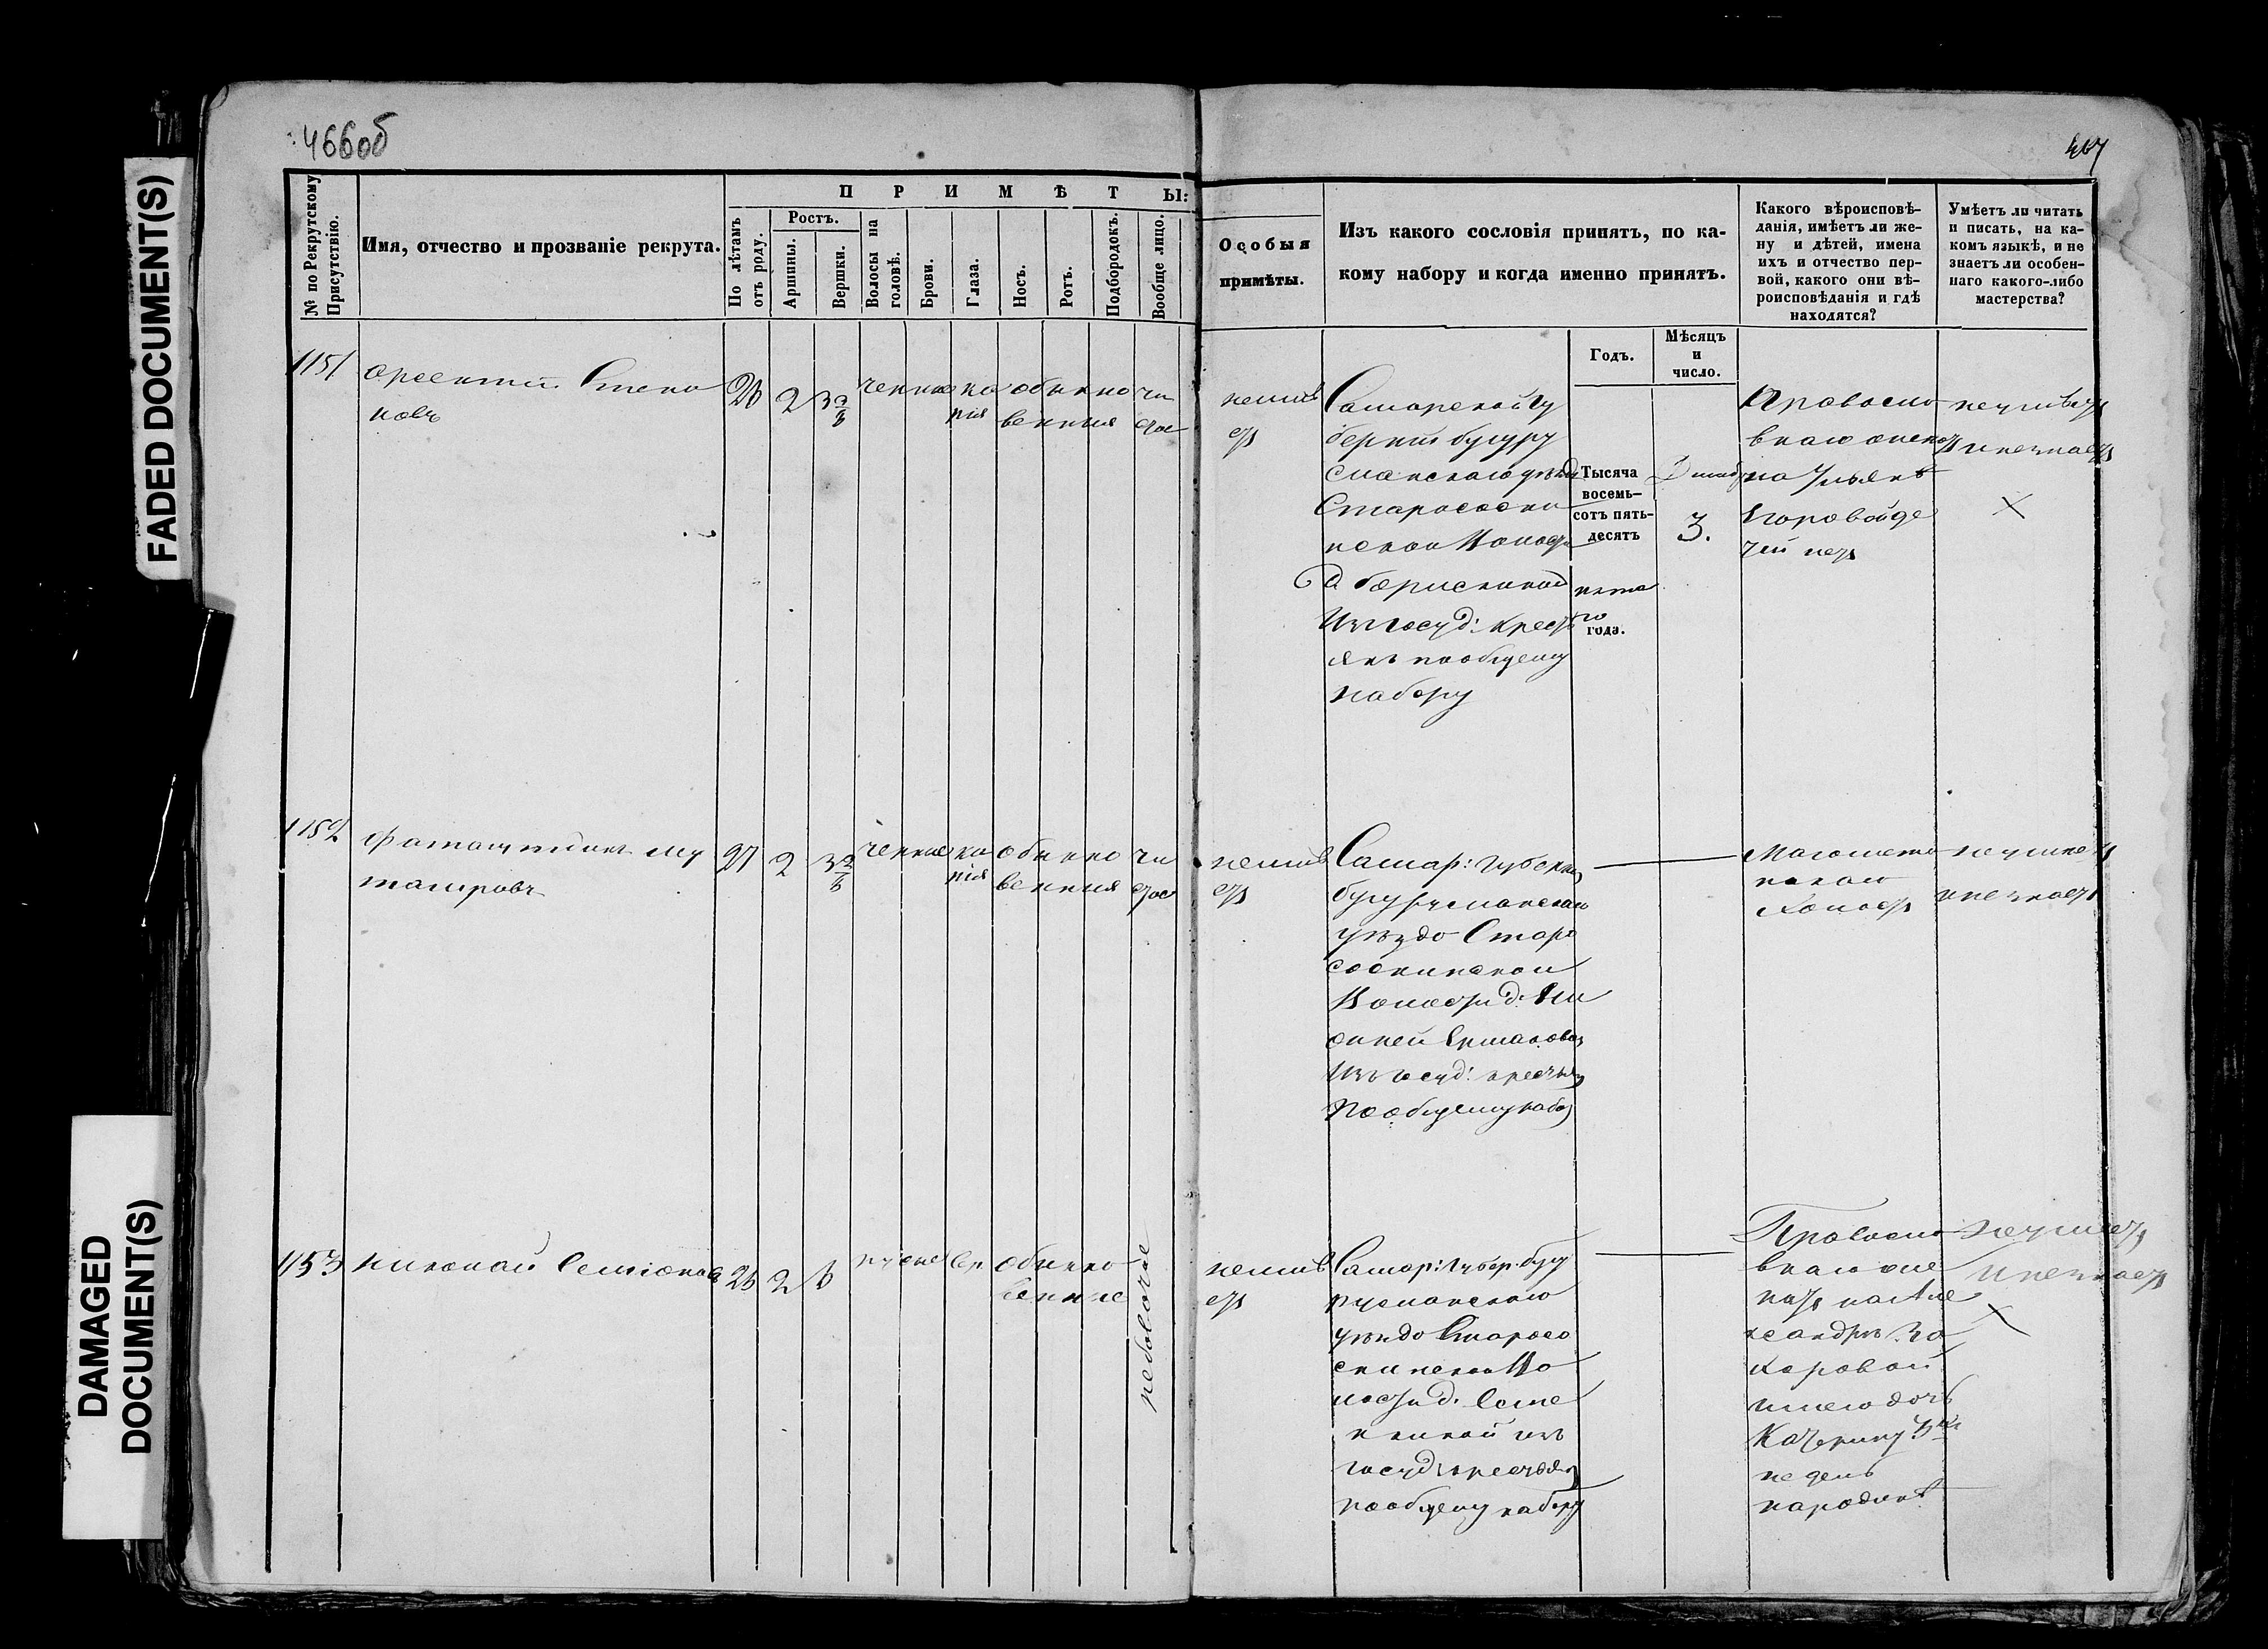 466об
467
FADED DOCUMENT(S)
DAMAGED
DOCUMENT(S)
№ по Рекрутскому
Присутствію.
Имя, отчество и прозваніе рекрута.
П Р И М Ѣ Т Ы:
По лѣтамъ
отъ роду.
Ростъ.
Аршины.
Вершки.
Волосы на
головѣ.
Брови.
Глаза.
Носъ.
Ротъ.
Подбородокъ.
Вообще лицо.
Особыя
примѣты.
Изъ какого сословія принятъ, по ка-
кому набору и когда именно принятъ.
Годъ.
Мѣсяцъ
и
число.
Какого вѣроисповѣ-
данія, имѣетъ ли же-
ну и дѣтей, имена
ихъ и отчество пер-
вой, какого они вѣ-
роисповѣданія и гдѣ
находятся?
Умѣетъ ли читать
и писать, на ка-
комъ языкѣ, и не
знаетъ ли особен-
наго какого-либо
мастерства?
1151
Арсентий Степа
новъ
26 2 3
черные ка
рія
обыкно
венныя
чи
стое
неимѣ
етъ
Самарской гу
берніи бугуру
сланскаго
Старососки
нской Волости
д. борискиной
Изъ госуд: крест
янъ пообщему
набору
Тысяча
восемь-
сотъ пять-
десятъ
пята
го
года.
3.
Правосла
внаго женатъ
на Ульянѣ
Егоровой де
тей нетъ
неумѣетъ
и незнаетъ
1152
27 2 3
черные ка
рія
обыкно
венныя
чи
стое
неимѣ
етъ
Самар: губерни
бугурусланскаго
уѣзда Старо
соскинской
Волости д. Ни
жней Ермаковой
Изъ госуд: крестья
Пообщему набо
Магомета
нскаго
Холостъ
неумѣетъ
и незнаетъ
1153
Николай Семіоновъ
26 2 6
русые сер
обыкно
венные
рябоватое
неимѣ
етъ
Самар: губер. бугу
русланскаго
уѣзда Старосо
скинской Во
лости д.
госуд: крестьян
пообщему набору
Правосла
внаго же
натъ на Але
ксандрѣ За
харовой
имею дочь
Катерину 3хъ
недель
народинѣ
неумѣетъ
и незнаетъ